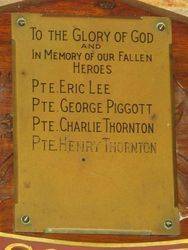 To the Glory of God
and
In Memory of our Fallen
Heroes
Pte. Eric Lee
Pte. George Piggott
Pte. Charlie Thornton
Pte. Henry Thornton